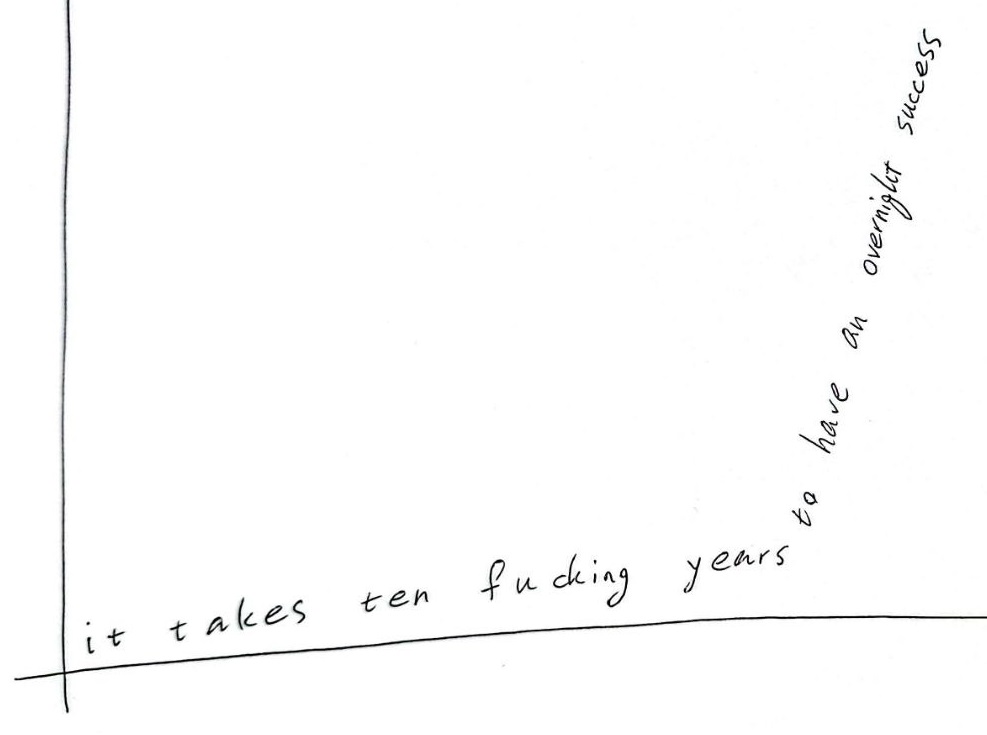 it takes ten fucking years to have an overnight success